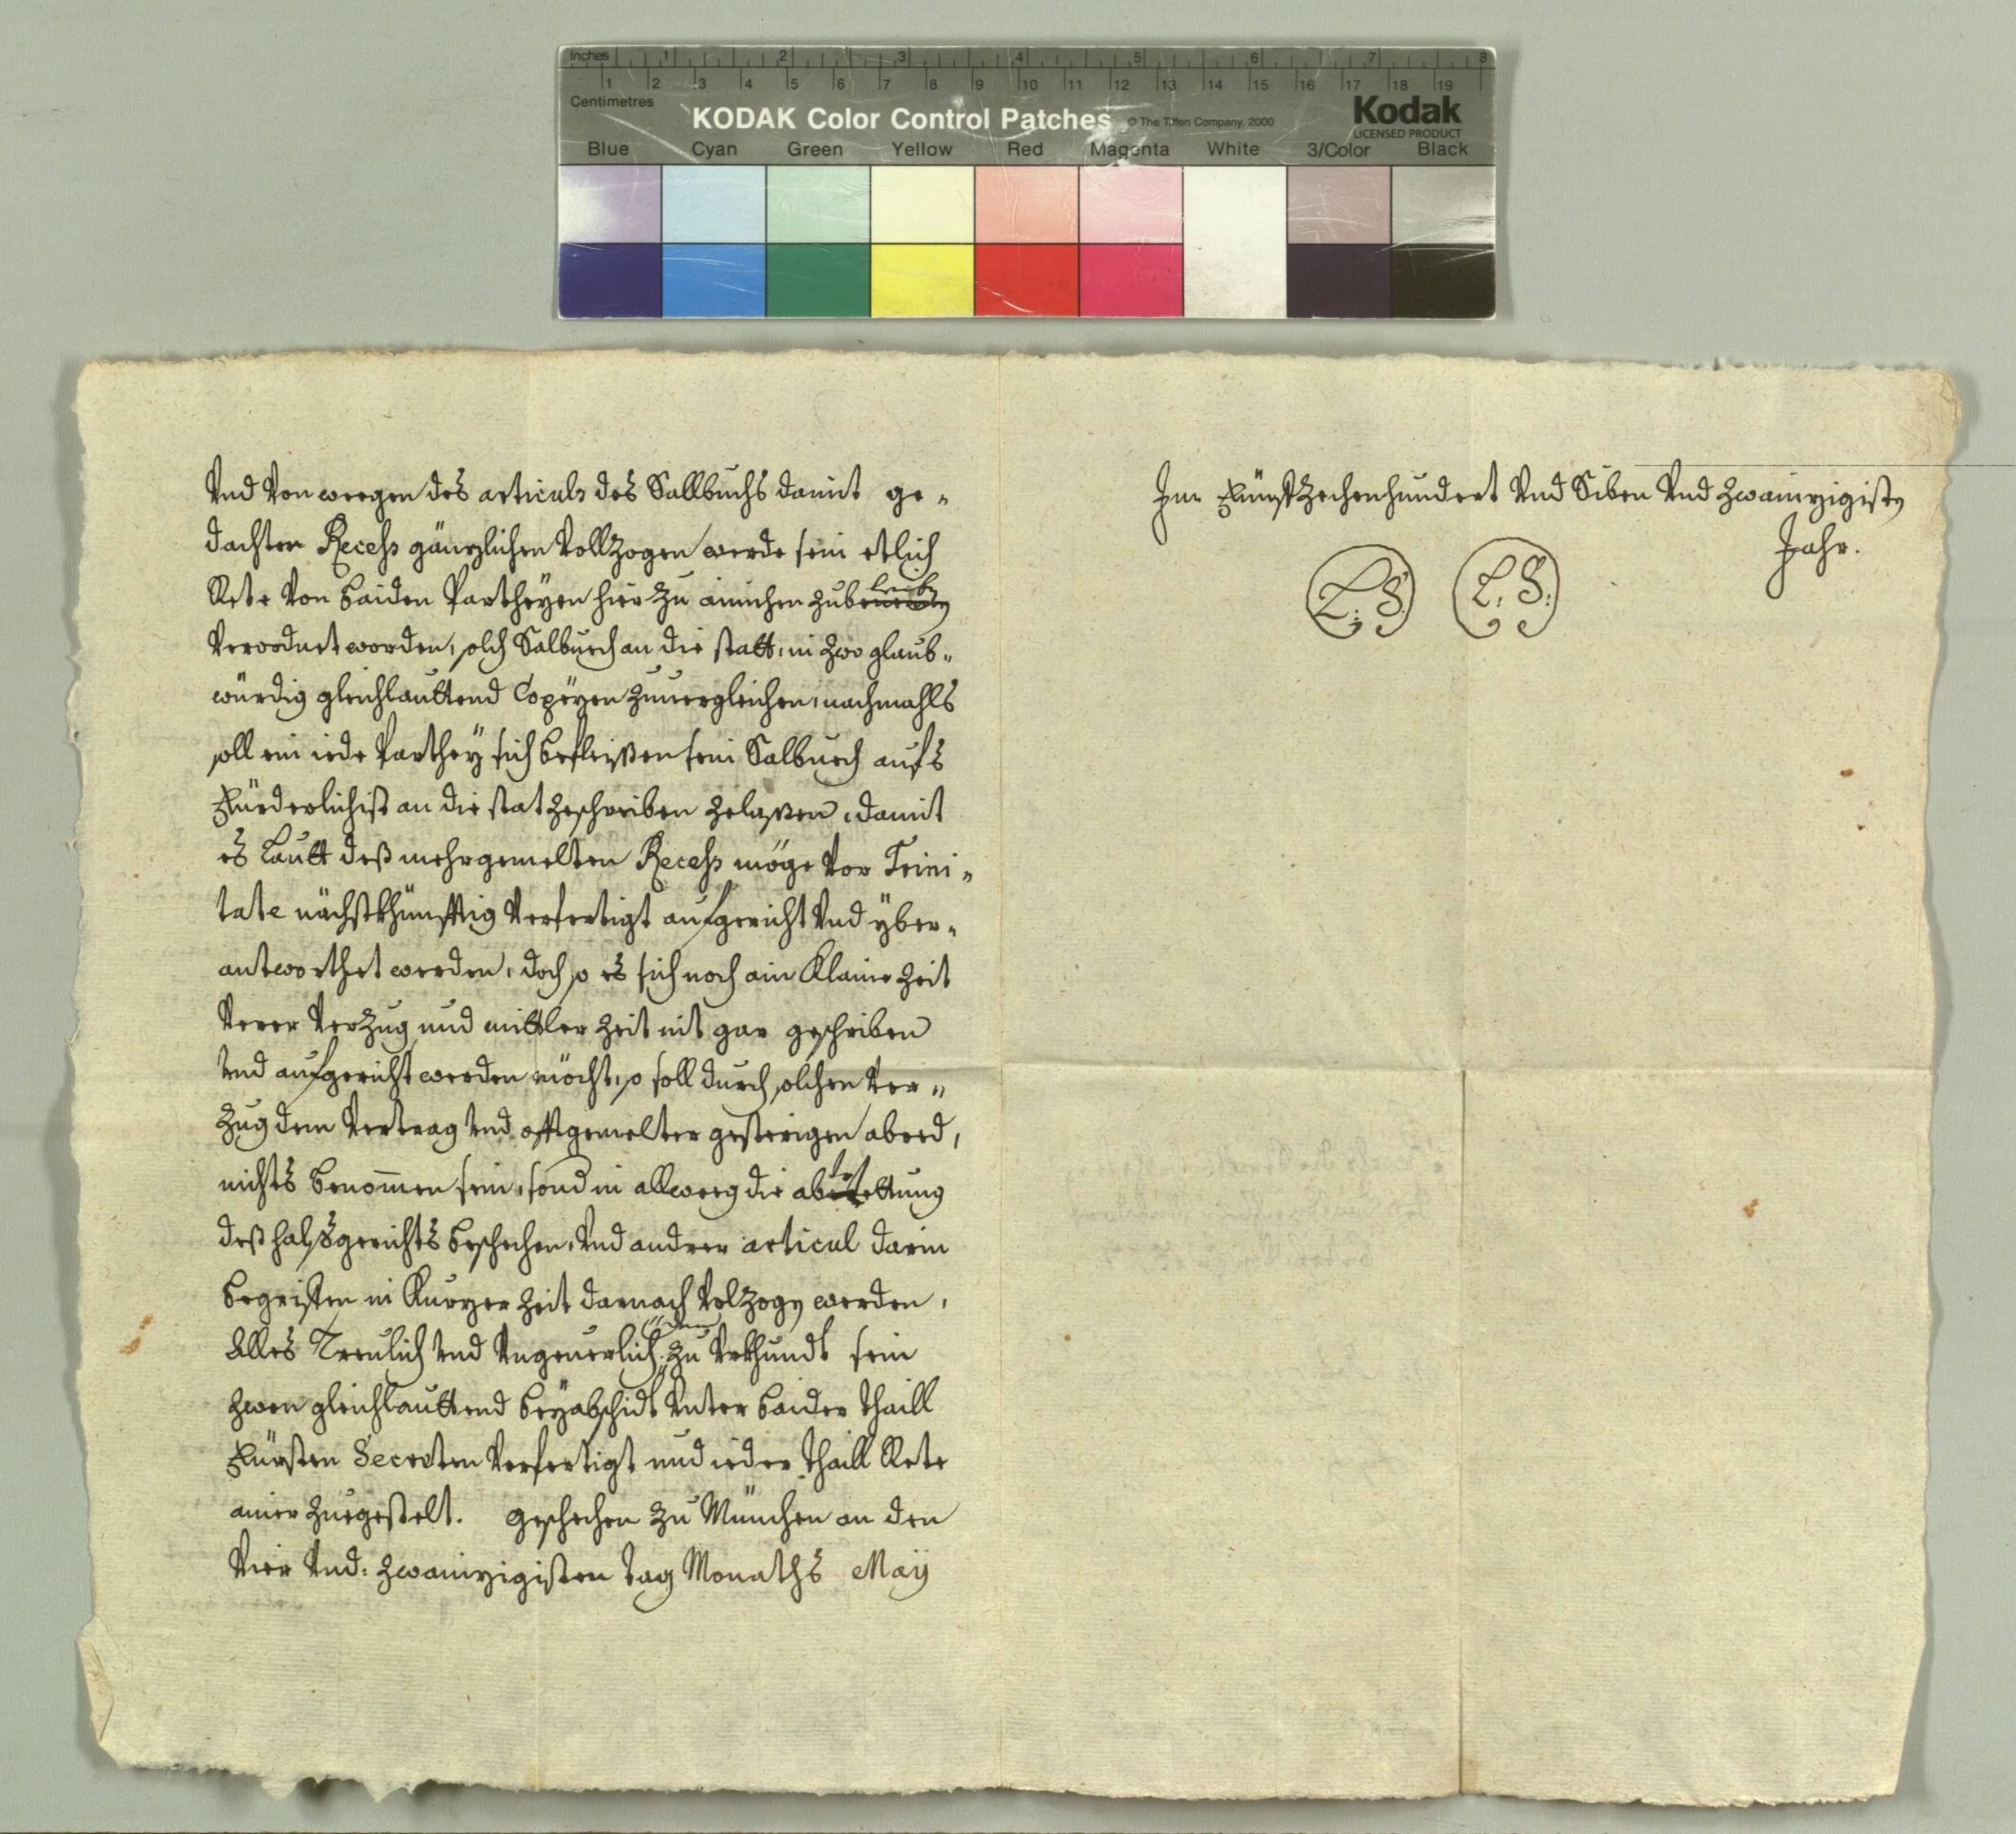 Inches 1 2 3 4 5 6 7 8
1 2 3 4 5 6 7 8 9 10 11 12 13 14 15 16 17 18 19
Centimetres
KODAK Color Control Patches © The Tiffen Company, 2000 Kodak
LICENSED PRODUCT
Blue Cyan Green Yellow Red Magenta White 3/Color Black
Vnd Von weegen des articuls des Sallbuchs damit ge-
dachter Recess gänzlichen Vollzogen werde sein etlich
Rete Von baiden Partheyen hier zu
Verordnet worden, solch Salbuech an die statt, in zwo glaub-
würdig gleichlauttend Copeyen zuuergleichen, nachmahls
soll ein iede Parthey sich befleißen sein Salbuech aufs
Fürderlichist an die stat zeschreiben zelaßen, damit
es Lautt deß mehrgemelten Recess möge Vor Trini-
tate nächstkhünfftig Verfertigt aufgericht Vnd yber-
antworthet werden, doch so es sich noch ain Klaine Zeit
Verer Verzug und mittler Zeit nit gar geschriben
Vnd aufgericht werden möcht, so soll durch solchen Ver-
zug dem Vertrag Vnd offtgemelter gesterigen abred,
nichts benommen sein, sond in allweeg die
deß halßgerichts beschechen, Vnd andrer articul darin
begriffen in Kurzer Zeit darnach Volzogen werden,
Alles Treulich Vnd Vngeuerlich, zu Vrkhundt sein
zwen gleichlauttend beyabschidt Vnter baider thaill
Fürsten Secreten Verfertigt und ieder thaill Rete
ainer zuegestelt. Geschechen zu München an den
Vier Vnd: zwainzigisten tag Monaths Maÿ
Im Fünffzechenhundert Vnd Siben Vnd zwainzigisten
Jahr.
L: S: L: S: